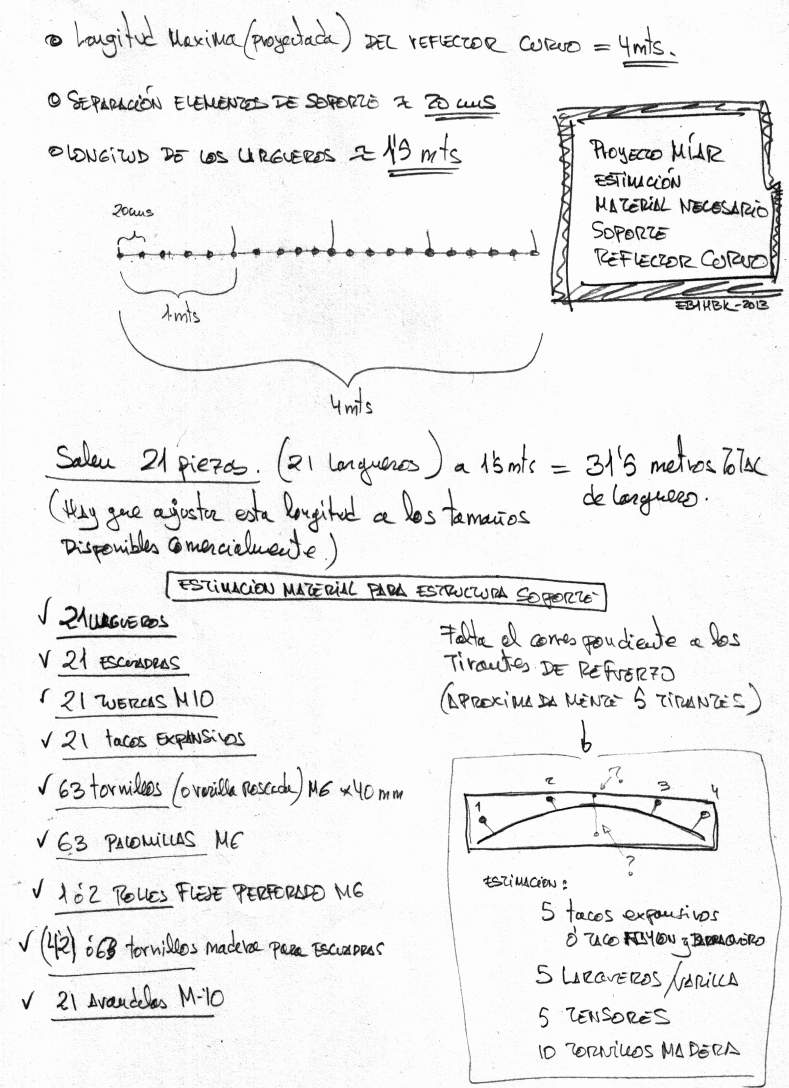 Longitud Maxima (proyectada) DEL REFLECTOR CURVO = 4 mts.
SEPARACIÓN ELEMENTOS DE SOPORTE ≈ 20 cms
LONGITUD DE LOS LARGUEROS ≈ 1'5 mts
PROYECTO MÍAR
ESTIMACIÓN
MATERIAL NECESARIO
SOPORTE
REFLECTOR CURVO
EB1HBK-2013
20cms
1 mts
4 mts
Salen 21 piezas. (21 Largueros) a 1'5 mts = 31'5 metros TOTAL
de larguero.
(Hay que ajustar esta longitud a los tamaños
Disponibles comercialmente.)
ESTIMACIÓN MATERIAL PARA ESTRUCTURA SOPORTE
√ 21 LARGUEROS
√ 21 ESCUADRAS
√ 21 TUERCAS M10
√ 21 tacos EXPANSIVOS
√ 63 tornillos (o varilla Roscada) M6 x 40 mm
√ 63 PALOMILLAS M6
√ 1 ó 2 ROLLOS FLEJE PERFORADO M6
√ (42) ó 63 tornillos madera para ESCUADRAS
√ 21 Arandelas M-10
Falta el correspondiente a los
Tirantes DE REFUERZO
(APROXIMADAMENTE 5 TIRANTES)
1 2 ? 3 4
?
ESTIMACIÓN:
5 tacos expansivos
ó TACO NYLON y BARRAQUERO
5 LARGUEROS/VARILLA
5 TENSORES
10 TORNILLOS MADERA